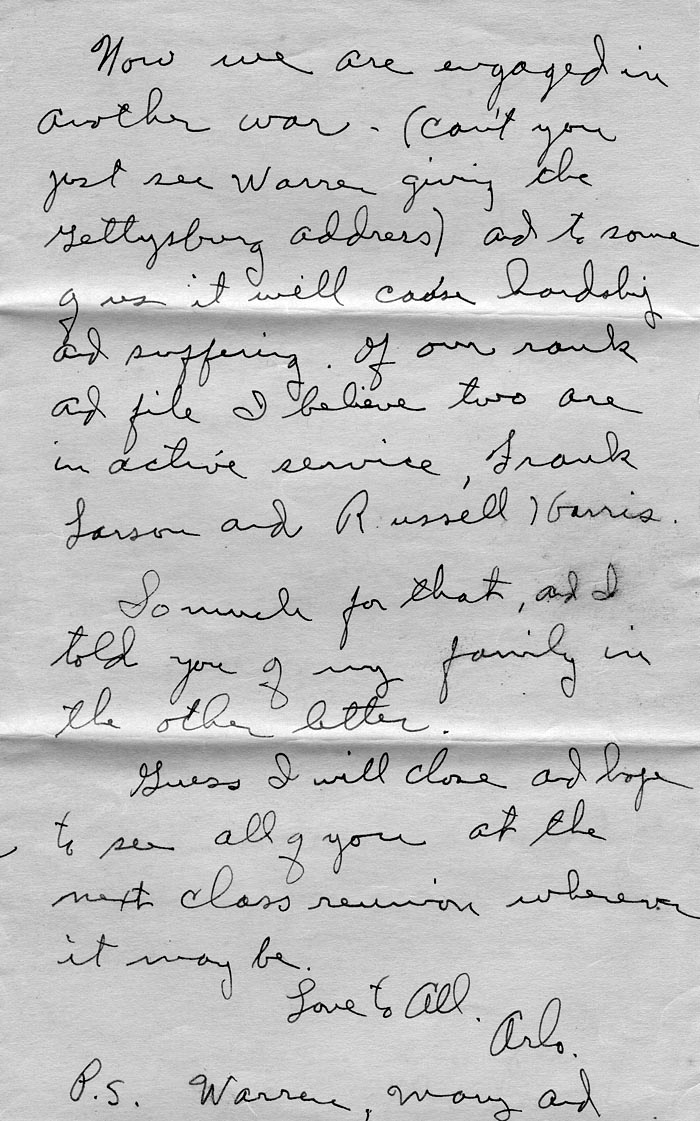 Now we are engaged in
another war - (can't you
just see Warren giving the
Gettysburg address) and to some
of us it will cause hardship
and suffering. Of our rank
and file I believe two are
in active service, Frank
Larson and Russell Harris.
So much for that, and I
told you of my family in
the other letter.
Guess I will close and hope
to see all of you at the
next class reunion wherever
it may be.
Love to All.
Arlo.
P.S. Warren, Mary and